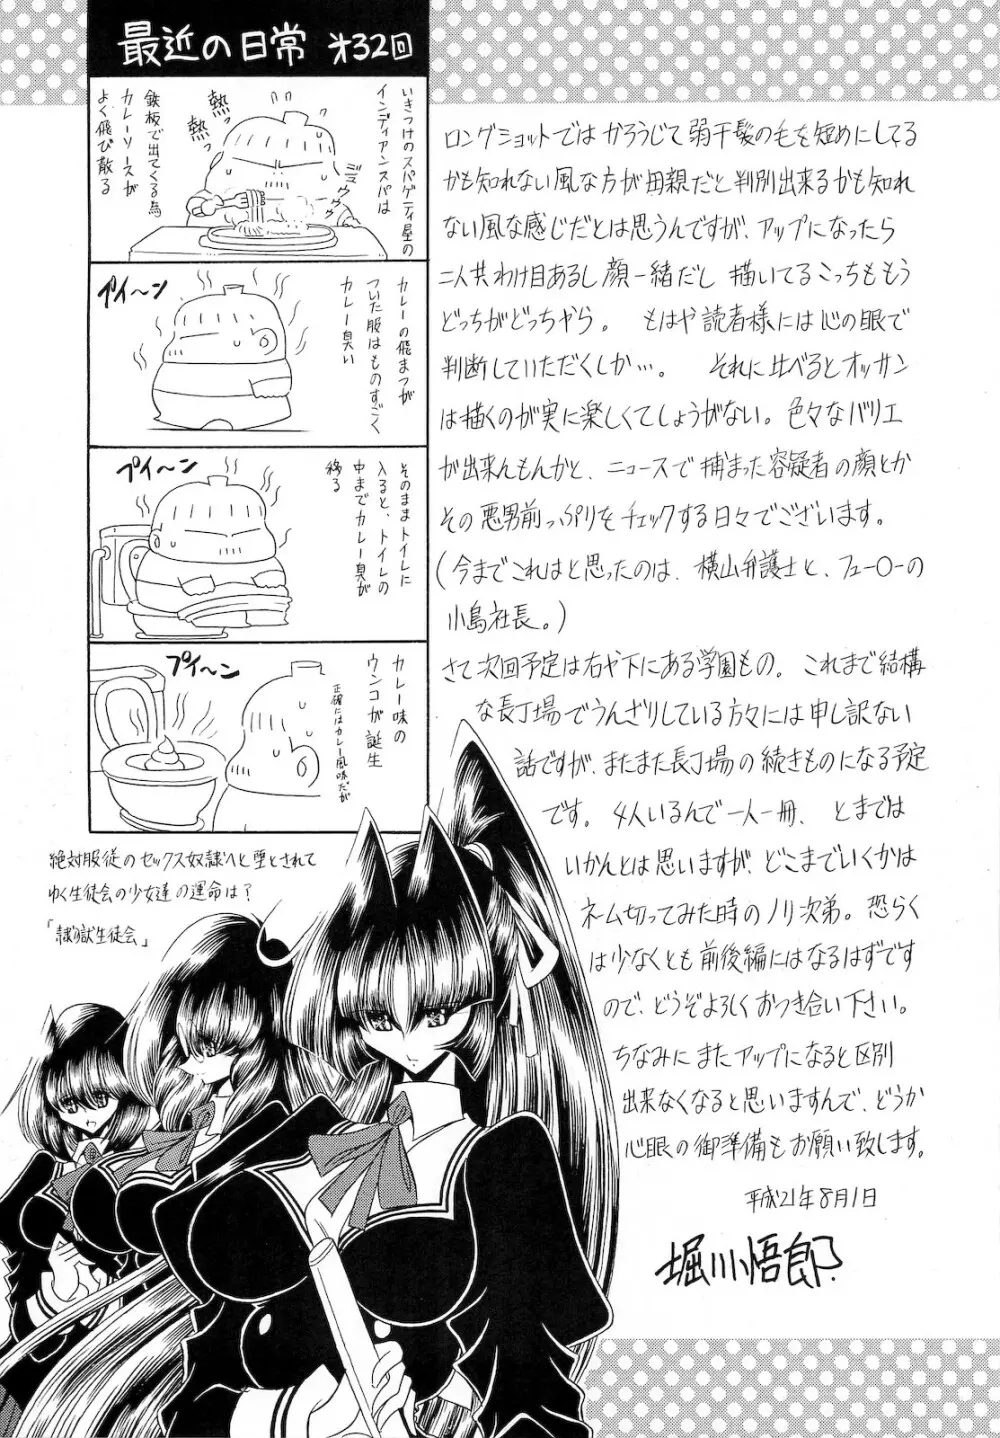 最近の日常 オ32回
いきつけのスパゲティ屋の
インディアンスパは
熱っ
熱っ
鉄板で出てくる為
カレーソースが
よく飛び散る
プイ〜ン
カレーの飛まつが
ついた服はものすごく
カレー臭い
プイ〜ン
そのままトイレに
入ると、トイレの
中までカレー臭が
移る
プイ〜ン
カレー味の
ウンコが誕生
正確にはカレー風味だが
ロングショットではかろうじて弱干髪の毛を短めにしてる
かも知れない風な方が母親だと判別出来るかも知れ
ない風な感じだとは思うんですが、アップになったら
二人共わけ目あるし顔一緒だし描いてるこっちももう
どっちがどっちやら。もはや読者様には心の眼で
判断していただくしか…。それに比べるとオッサン
は描くのが実に楽しくてしょうがない。色々なバリエ
が出来んもんかと、ニュースで捕まった容疑者の顔とか
その悪男前っぷりをチェックする日々でございます。
(今までこれはと思ったのは、横山弁護士と、フューO-の
小島社長。)
さて次回予定は右や下にある学園もの。これまで結構
な長丁場でうんざりしている方々には申し訳ない
話ですが、またまた長丁場の続きものになる予定
です。4人いるんで一人一冊、とまでは
いかんとは思いますが、どこまでいくかは
ネーム切ってみた時のノリ次弟。恐らく
は少なくとも前後編にはなるはずです
ので、どうぞよろしくおつき合い下さい。
ちなみにまたアップになると区別
出来なくなると思いますんで、どうか
心眼の御準備もお願い致します。
平成21年8月1日
堀川悟郎